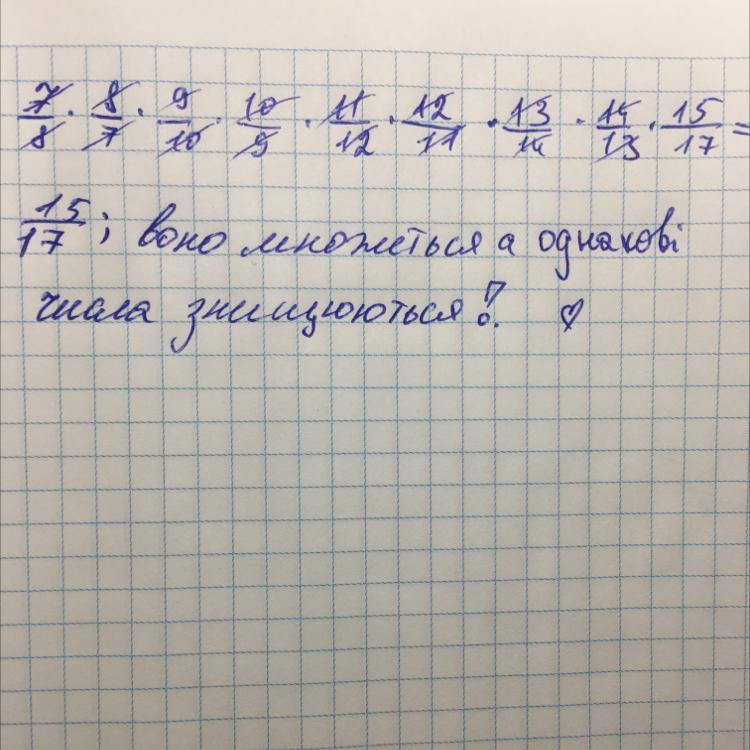 7/8 · 8/7 · 9/10 · 10/9 · 11/12 · 12/11 · 13/14 · 14/13 · 15/17 =
15/17; воно множеться а однакові
числа знищюються? ♡